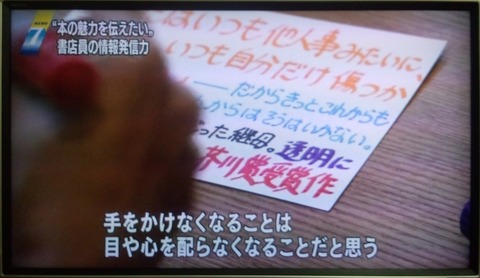 NEWS
7
“本の魅力を伝えたい。
書店員の情報発信力
はいつも他人事みたいに、
いつも自分だけ傷つか
だからきっとこれからも
からはそうはいかない。
った継母。透明に
芥川賞受賞作
手をかけなくなることは
目や心を配らなくなることだと思う